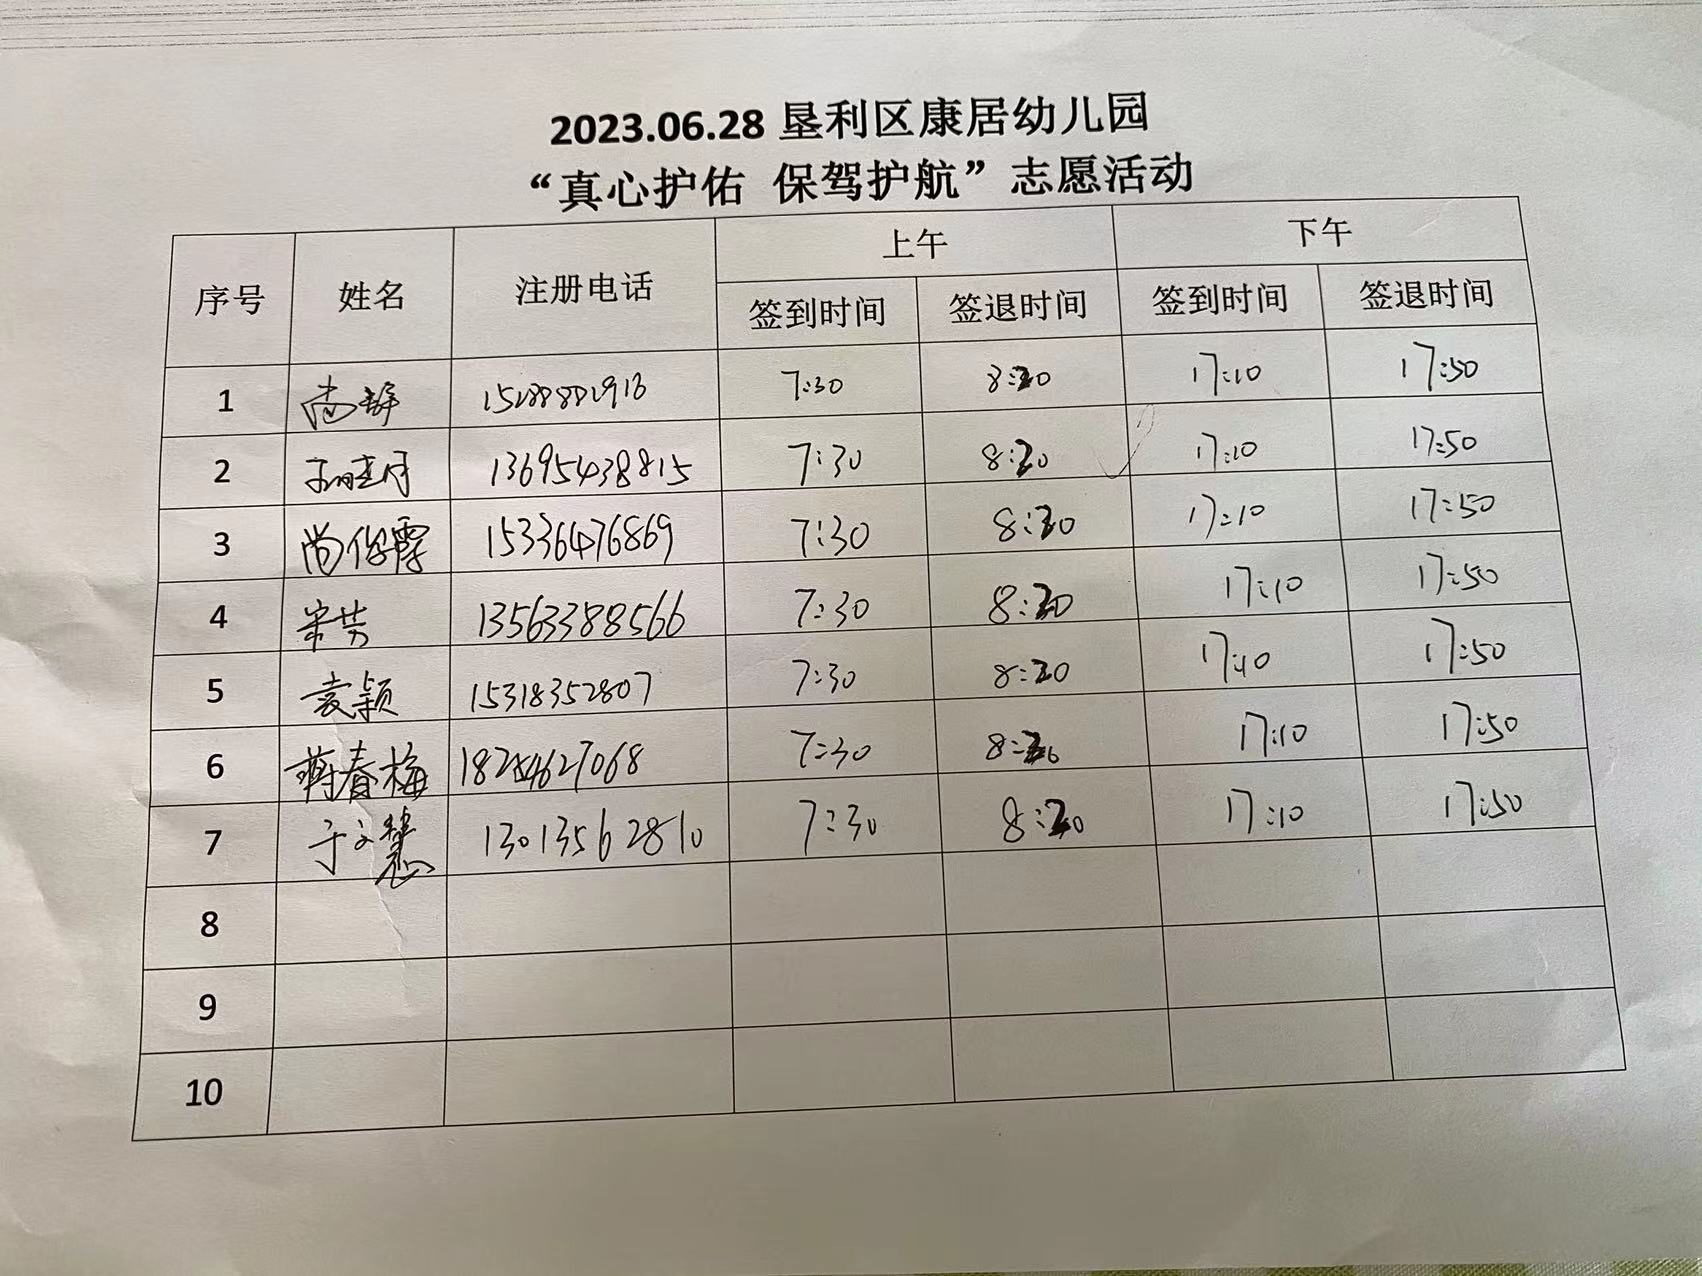 2023.06.28 垦利区康居幼儿园
“真心护佑 保驾护航”志愿活动
序号 姓名 注册电话 上午 下午
签到时间 签退时间 签到时间 签退时间
1 尚静 7:30 8:20 17:10 17:50
2 13695438815 7:30 8:20 17:10 17:50
3 15336476869 7:30 8:20 17:10 17:50
4 宋芳 13563388566 7:30 8:20 17:10 17:50
5 袁颖 15318352807 7:30 8:20 17:10 17:50
6 蒋春梅 7:30 17:10 17:50
7 于文慧 13013562810 7:30 8:20 17:10 17:50
8
9
10